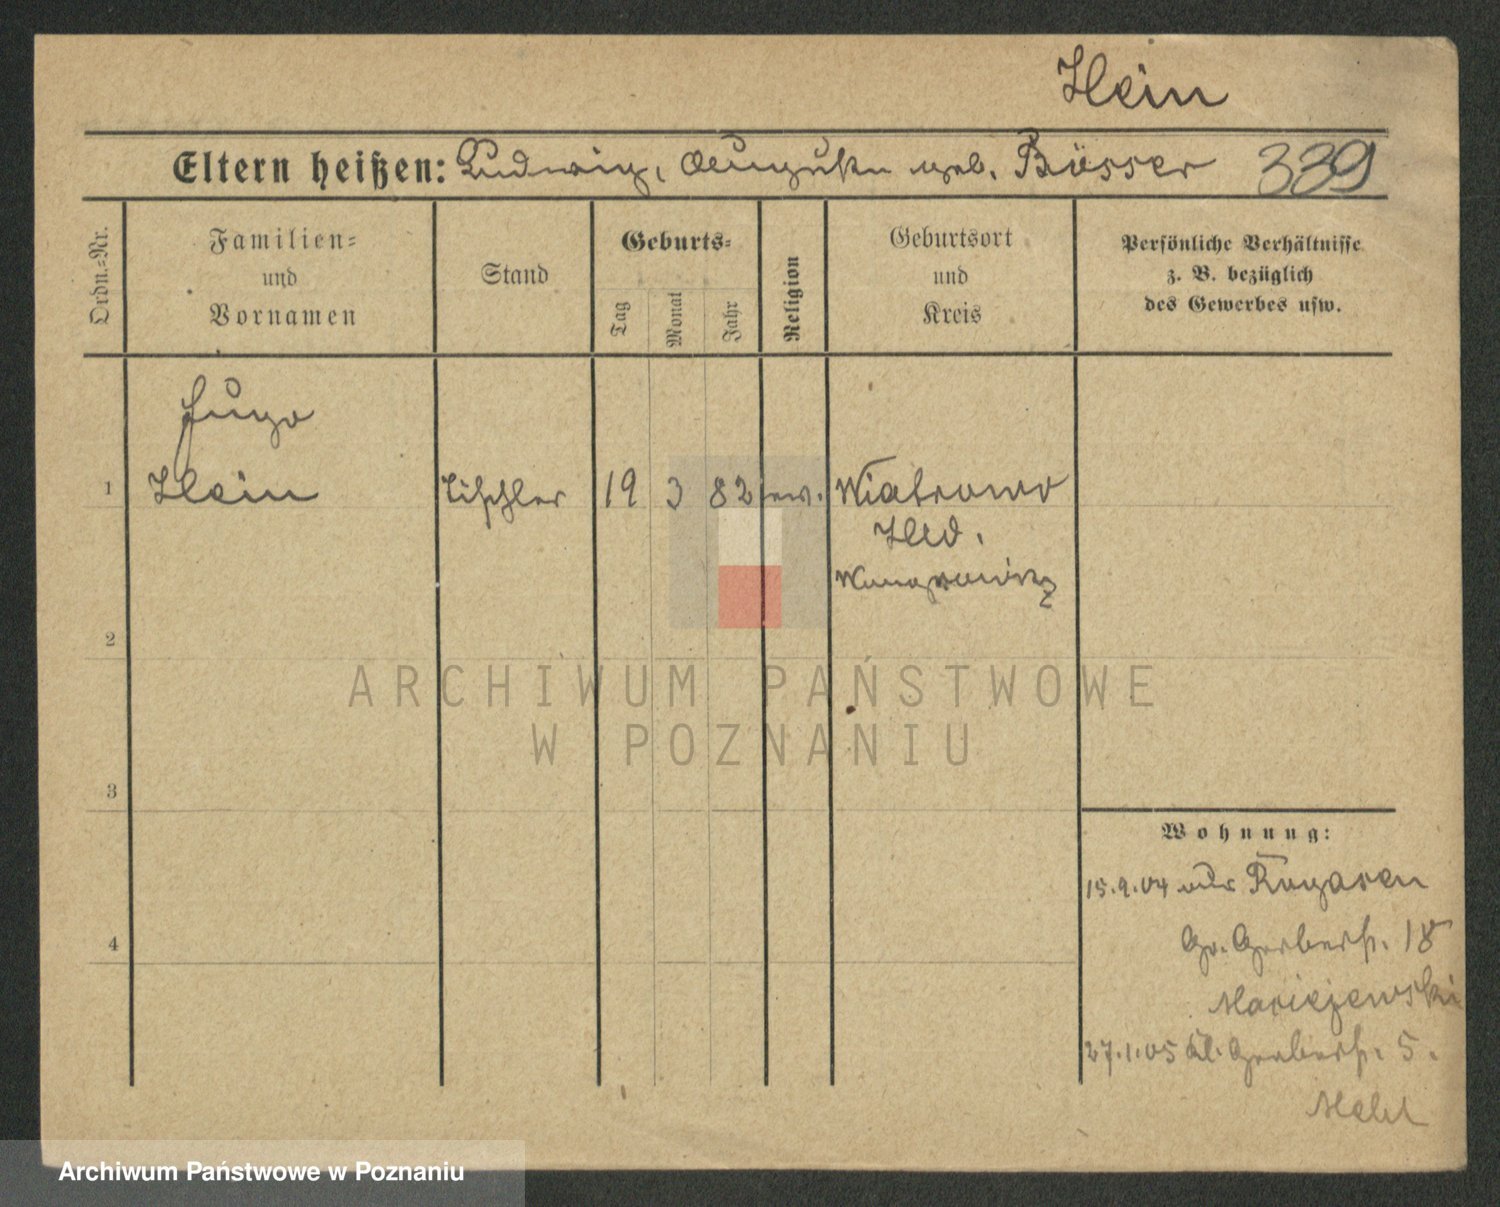 Hein
Eltern heißen: Ludwig, Auguste geb. Büsser 339
Ordn.-Nr.
Familien-
und
Vornamen
Stand
Geburts-
Tag
Monat
Jahr
Religion
Geburtsort
und
Kreis
Persönliche Verhältnisse
z. B. bezüglich
des Gewerbes usw.
Hugo
1 Hein Tischler 19 3 82 ev. Wiatrowo
Hld.
Wongrowitz
2
ARCHIWUM PAŃSTWOWE
W POZNANIU
3
Wohnung:
15.9.04 aus Rogasen
4
Gr. Gerberst. 18
Maciejewski
27.1.05 Kl. Gerberst. 5.
Archiwum Państwowe w Poznaniu